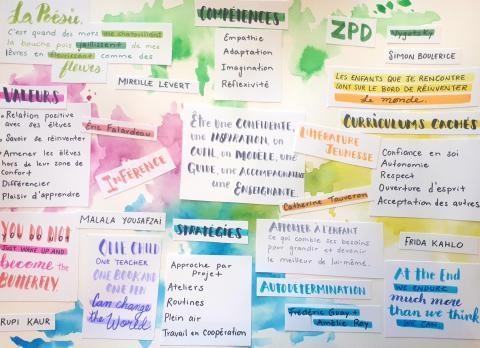 La Poésie,
c'est quand des mots me chatouillent
la bouche puis jaillissent de mes
lèvres en fleurissant comme des
fleurs
MIREILLE LEVERT
COMPÉTENCES
Empathie
Adaptation
Imagination
Réflexivité
ZPD
Vygotsky
SIMON BOULERICE
LES ENFANTS QUE JE RENCONTRE
SONT SUR LE BORD DE RÉINVENTER
Le monde.
VALEURS
Relation positive
avec ses élèves
Savoir se réinventer
Amener les élèves
hors de leur zone de
confort
Différencier
Plaisir d'apprendre
Éric Falardeau
INFÉRENCE
ÊTRE UNE CONFIDENTE,
UNE INSPIRATION, UN
OUTIL, UN MODÈLE, UNE
GUIDE, UNE ACCOMPAGNATRICE
UNE ENSEIGNANTE.
LITTÉRATURE
JEUNESSE
Catherine Tauveron
CURRICULUMS CACHÉS
Confiance en soi
Autonomie
Respect
Ouverture d'esprit
Acceptation des autres
YOU DO NOT
JUST WAKE UP AND
become the
BUTTERFLY.
RUPI KAUR
MALALA YOUSAFZAI
ONE CHILD
ONE TEACHER
ONE BOOK AND
ONE PEN
Can change
the World.
STRATÉGIES
Approche par
Projet
Ateliers
Routines
Plein air
Travail en coopération
APPORTER À L'ENFANT
ce qui comble ses besoins
pour grandir et devenir
le meilleur de lui-même.
AUTODÉTERMINATION
Frédéric Guay +
Amélie Roy
FRIDA KAHLO
At the End
WE ENDURE
much more
than we think
WE CAN.